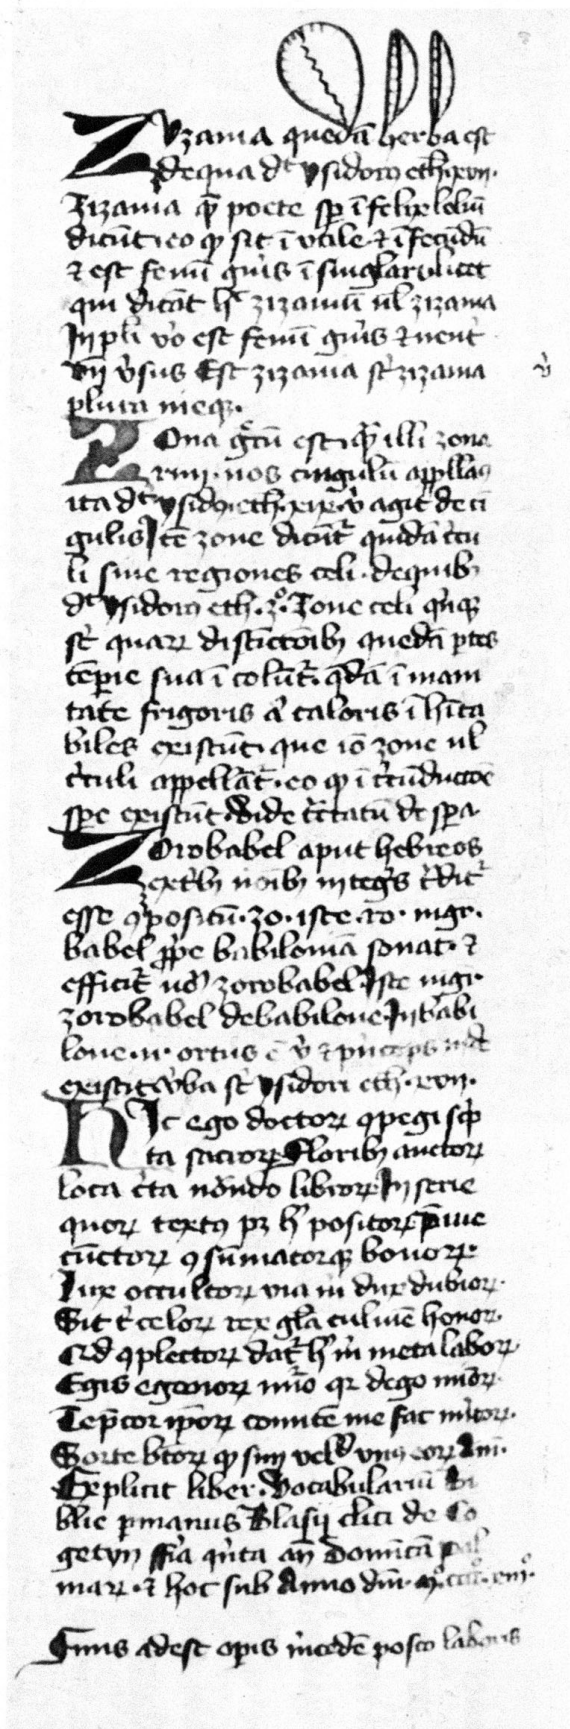 Zyzania quedā herba est
de qua dt ysidorꝰ eth. xvii.
Zizania qᷓ poete sꝑ īfelix loliū
dicūt eo ꝙ sit īvtile ⁊ īfecūdū
⁊ est femī gn̄is ī singlari licet
qui dicāt h zizaniū ul zizania
In pli v̓o est femī gn̄is ⁊ neut̓
vn̄ v̓sus Est zizania st̓ zizania
plura neqꝫ.
Zona grecū est qᷓ illi zona
riū nos cingulū appellāꝰ
ita dt ysid eth. xix. v̓ agit de cī
gulis Itē zone dicūt̓ quidā circu
li siue regiones celi. de quibꝫ
dt ysidorꝰ eth. 3º. Zone celi qͥnqꝫ
st̓ quarꝝ distīctōibꝫ quedā ꝑtes
tēꝑie sua īcolūt̓. qͣdā ī mani
tate frigoris aͭ caloris īhīta
biles existūt que iō zone ul
circuli appellāt̓. eo ꝙ ī circūductōe
spe existūt. Vide tͣctatū de spa
Zorobabel aput hebreos
ex tͥbꝫ noībꝫ integͥs tͣdit̓
esse ꝯpositū. zo. iste. ro. mgr̄.
babel ꝓpe babiloniā sonat. ⁊
efficit̓ nōn̄ zorobabel. Iste mgr̄
zorobabel de babilone. In babi
lone. n̄. ortus ē v̓ ⁊ pͥnceps
existit verba st̓ ysidori eth. xvii.
Hic ego doctorꝝ ꝯpegi scͥp
ta sacrorꝝ Floribꝫ auctorꝝ
loca cͥta notādo librorꝝ In serie
quorꝝ textꝰ pꝫ h̓ positorꝝ
cūctorꝝ ꝯsūmatorqꝫ bonorꝝ
Lux occultorꝝ via m̄ dux dubiorꝝ.
Sit tͥ celorꝝ rex gl̄a culmē honorꝝ.
Ad ꝯplectorꝝ dat̓ h̓ m̄ meta laborꝝ
Egis egenorꝝ nūo qͥ dego minorꝝ.
Te pͣcor ip̄orꝝ comitē me fac mͥtorꝝ.
Sorte bt̄orꝝ ꝙ sim vel vnꝰ eorꝝ Amē.
Explicit liber. Vocabulariū Bi
blie ꝑ manus Blasij clici de Co
getyn ffͥa qͥnta an̄ Domīcā pal
marꝝ. ⁊ hoc sub Anno dn̄i. mº. cccº.
Finis adest oꝑis m̓cedē posco laboris